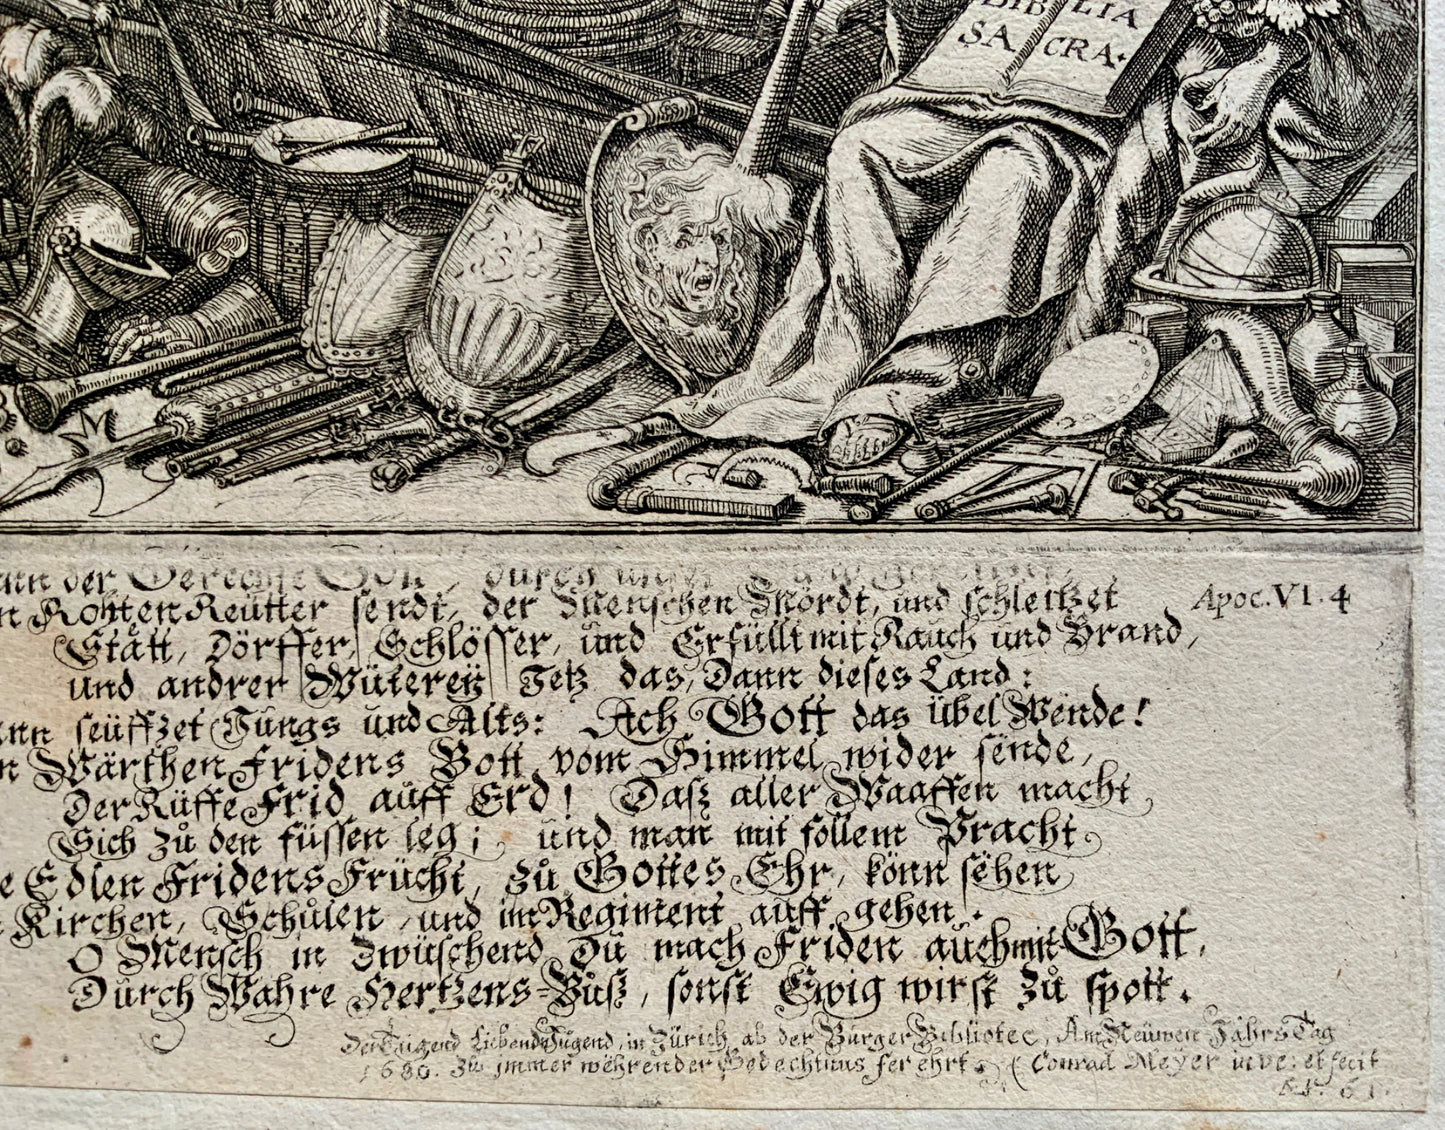 BIBLIA
SACRA.
M
der Gerechte Gott, durch
Rohten Reütter sendt, der Menschen Mördt, und schleitzet
Apoc. VI. 4
Stätt, Dörffer, Schlösser, und Erfüllt mit Rauch und Brand,
und andrer Wüterey Jetz das, Dann dieses Land:
seüffzet Jungs und Alts: Ach Gott das übel Wende!
Wärthen Fridens Bott vom Himmel wider sende,
Der Rüffe Frid auff Erd! Dasz aller Waaffen macht,
Sich zů den füssen leg; und man mit follem Pracht
Edlen Fridens Frücht, zů Gottes Ehr, könn sehen
Kirchen, Schůlen, und im Regiment auff gehen.
O Mensch in zwüschend Du mach Friden auch mit Gott,
Durch Wahre Hertzens-Bůsz, sonst Ewig wirst zů spott.
Der Tugend Liebend Jugend, in Zürich, ab der Burger Bibliotec, Am Neüwen Jahrs Tag
1680. Zu immer währender Gedechtnus ferehrt. Conrad Meyer inve: et fecit
61.